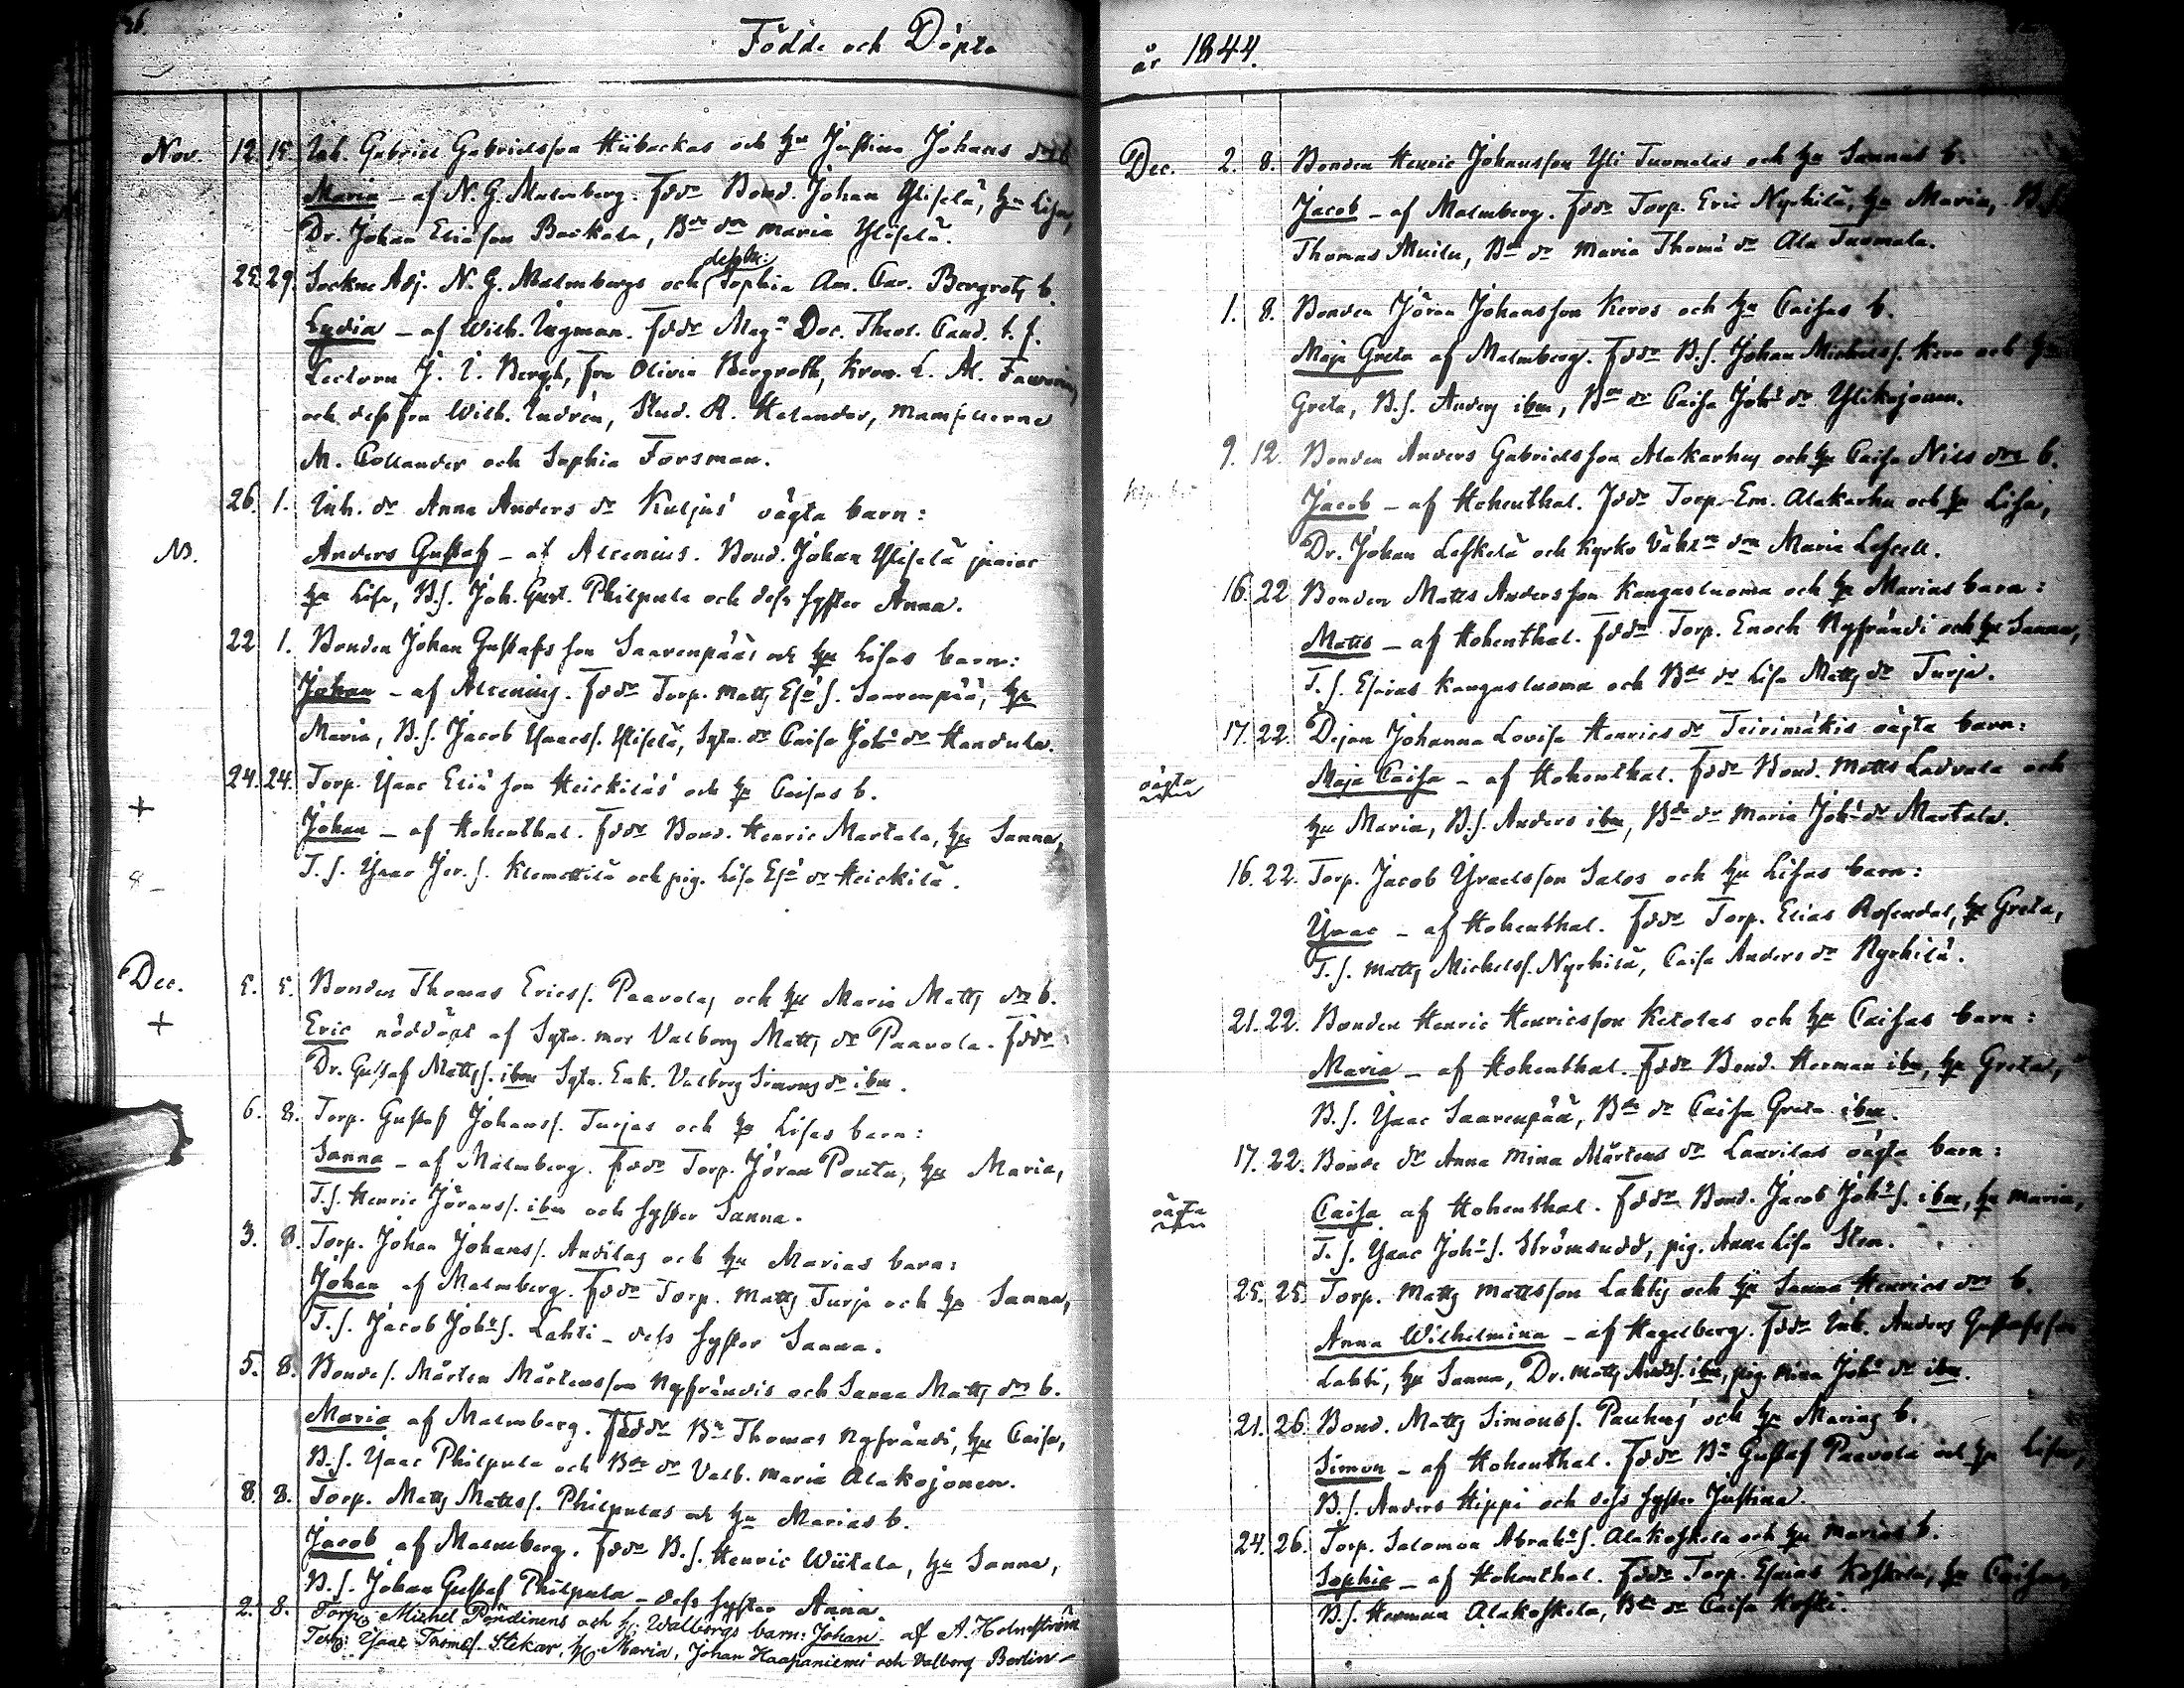 Födde och Döpte
Nov. 12. 15. Inh. Gabriel Gabrielsson Hübackas och hu Justina Johans drs b.
Maria – af N. G. Malmberg. Fddr Bond. Johan Yliselä, hu Lisa,
Dr. Johan Eliasson Backala, Bde dr Maria Ylisela.
25. 29. Sockne Adj. N. G. Malmbergs och Sophia Am. Car. Bergroth b.
Lydia – af Wilh. Ingman. Fddr Magr Doc. Theol. Cand. t. f.
Lectorn J. I. Bergh, fru Olivia Bergroth, Kron. L. Al.
och dess fru Wilh. Indrén, Stud. A. Helander, Mamsellerne
M. Collander och Sophia Forsman.
26. 1. Inh. dr Anna Anders dr Kuljus oägta barn:
NB. Anders Gustaf – af Alcenius. Bond. Johan Ylisela
hu Lisa, B.s. Joh. Gust. Philpula och dess syster Anna.
22 1. Bonden Johan Gustafsson Saarenpääs och hu Lisas barn:
Johan – af Alcenius. Fddr Torp. Matts Esa s. Saarenpää, hu
Maria, B.s. Jacob Isaacs. Ylisela, Sytn. dr Caisa Joh. dr Handula.
24. 24. Torp. Isaac Eliasson Heickiläs och hu Caisas b.
+ Johan – af Hohenthal. Fddr Bond. Henric Martala, hu Sanna,
T.s. Isaac Jer. s. Klemettilä och pig. Lisa Esa dr Heickilä.
8 –
Dec. 5. 5. Bonden Thomas Erics. Paavolas och hu Maria Matts drs b.
+ Eric nöddöpt af Sytn. mor Valborg Matts dr Paavola. Fddr
Dr. Gustaf Matts s. ibm Sytn. Enk. Valborg Simons dr ibm.
6. 8. Torp. Gustaf Johans s. Turjas och hu Lisas barn:
Sanna – af Malmberg. Fddr Torp. Jöran Pouta, hu Maria,
T.s. Henric Jörans s. ibm och syster Sanna.
3. 8. Torp. Johan Johans s. Andilas och hu Marias barn:
Johan af Malmberg. Fddr Torp. Matts Turja och hu Sanna,
T.s. Jacob Joh. s. Lahti – dess syster Sanna.
5. 8. Bondes. Mårten Mårtensson Nyfrändis och Sanna Matts drs b.
Maria af Malmberg. Fddr Bn Thomas Nyfrändi, hu Caisa,
B.s. Isaac Philpula och Bde dr Valb. Maria Alakojonen.
8. 8. Torp. Matts Matts s. Philpulas och hu Marias b.
Jacob af Malmberg. Fddr B.s. Henric Wiitala, hu Sanna,
B.s. Johan Gustaf Philpula – dess syster Anna.
2. 8. Torp. Michel Pöndinens och h. Walborgs barn: Johan. af A. Holmström
Torp: Isaac Thomas s. Stekar, h. Maria, Johan Haapaniemi och Valborg Berlin –
år 1844.
Dec. 2. 8. Bonden Henric Johansson Yli Tuomalas och hu Sannas b.
Jacob – af Malmberg. Fddr Torp. Eric Nyrhilä, hu Maria,
Thomas Muilu, Bde dr Maria Thoms dr Ala Tuomala.
1. 8. Bonden Jöran Johansson Keros och hu Caisas b.
Maja Greta af Malmberg. Fddr B.s. Johan Michels s. Kero och hu
Greta, B.s. Anders ibm, Bde dr Caisa Joh. dr Ylikojonen.
9. 12. Bonden Anders Gabrielsson Alakarhus och hu Caisa Nils drs b.
Jacob – af Hohenthal. Fddr Torp. Em. Alakarhu och hu Lisa,
Dr. Johan Leskelä och Kyrko Väkt. dr Maria Lescell.
16. 22 Bonden Matts Andersson Kangasluoma och hu Marias barn:
Matts – af Hohenthal. Fddr Torp. Enoch Nyfrändi och hu Sanna,
T.s. Esaias Kangasluoma och Bde dr Lisa Matts dr Turja.
17. 22. Pejan Johanna Lovisa Henrics dr Teirimäkis oägta barn:
oägta Maja Caisa – af Hohenthal. Fddr Bond. Matts Ladvala och
hu Maria, B.s. Anders ibm, Bde dr Maria Joh. dr Martala.
16. 22. Torp. Jacob Israelsson Salos och hu Lisas barn:
Isaac – af Hohenthal. Fddr Torp. Elias Rosendal, hu Greta,
T.s. Matts Michels s. Nyrhilä, Caisa Anders dr Nyrhilä.
21. 22. Bonden Henric Henricsson Ketolas och hu Caisas barn:
Maria – af Hohenthal. Fddr Bond. Herman ibm, hu Greta,
B.s. Isaac Saarenpää, Bde dr Caisa Greta ibm.
17. 22. Bonde dr Anna Mina Mårtens dr Laurilas oägta barn:
oägta Caisa af Hohenthal. Fddr Bond. Jacob Joh. s. ibm, hu Maria,
T.s. Isaac Joh. s. Strömsudd, pig. Anna Lisa Sten.
25. 25. Torp. Matts Mattsson Lahtis och hu Sanna Henrics drs b.
Anna Wilhelmina – af Hagelberg. Fddr Inh. Anders Gustafsson
Lahti, hu Sanna, Dr. Matts And. s. ibm, pig. Mina Joh. dr ibm.
21. 26. Bond. Matts Simons s. Pauhus och hu Marias b.
Simon – af Hohenthal. Fddr Bn Gustaf Paavola och hu Lisa,
B.s. Anders Hippi och dess syster Justina.
24. 26. Torp. Salomon Abrah. s. Alakoskela och hu Marias b.
Sophia – af Hohenthal. Fddr Torp. Esaias Koskela, hu Caisa,
B.s. Herman Alakoskela, Bde dr Caisa Koski.